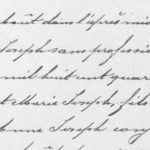 août dans l'après mid
Joseph sans professio
mil huit cent quar
et Marie Joseph, fils
Joseph conj